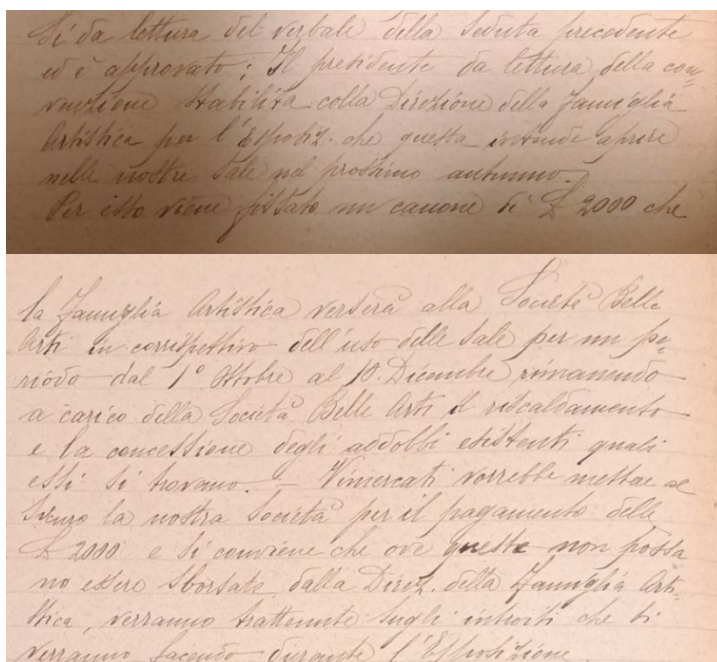 Si da lettura del verbale della seduta precedente
ed è approvato; Il presidente da lettura della con=
venzione stabilita colla Direzione della Famiglia
Artistica per l'Esposiz. che questa intende aprire
nelle nostre sale nel prossimo autunno.
Per esso viene fissato un canone di £ 2000 che
la Famiglia Artistica verserà alla Società Belle
Arti in corrispettivo dell'uso delle sale per un pe=
riodo dal 1° Ottobre al 10 Dicembre rimanendo
a carico della Società Belle Arti il riscaldamento
e la concessione degli addobbi esistenti quali
essi si trovano. - Vimercati vorrebbe mettere al
sicuro la nostra Società per il pagamento delle
£ 2000 e si conviene che ove queste non possa
no essere sborsate dalla Direz. della Famiglia Arti=
stica, verranno trattenute sugli introiti che si
verranno facendo durante l'Esposizione